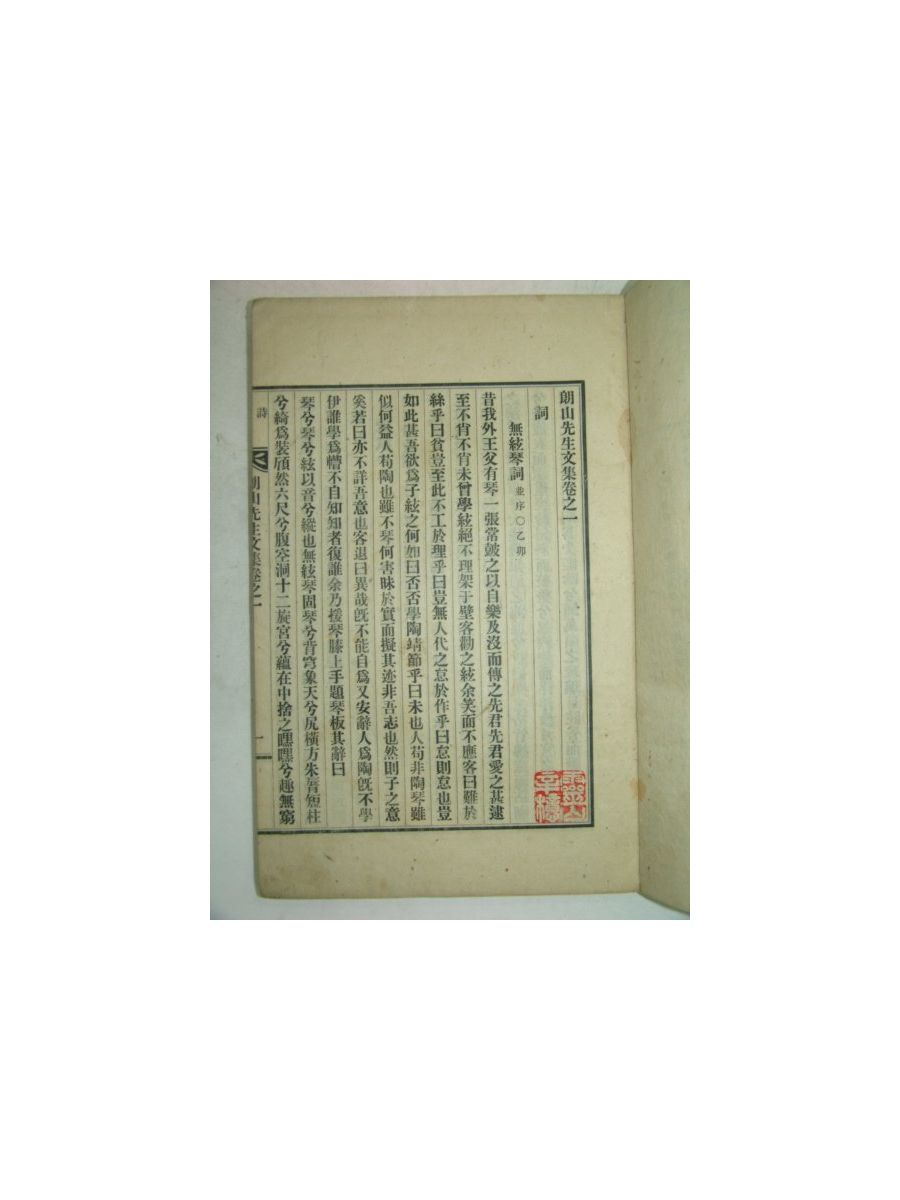 朗山先生文集卷之一
詞
無絃琴詞 並序○乙卯
昔我外王父有琴一張常皷之以自樂及沒而傳之先君先君愛之甚逮
至不肖不肖未曾學絃絕不理架于壁客勸之絃余笑而不應客曰難於
絲乎曰貧豈至此不工於理乎曰豈無人代之怠於作乎曰怠則怠也豈
如此甚吾欲爲子絃之何如曰否否學陶靖節乎曰未也人苟非陶琴雖
似何益人苟陶也雖不琴何害昧於實而擬其迹非吾志也然則子之意
奚若曰亦不詳吾意也客退曰異哉旣不能自爲又安辭人爲陶旣不學
伊誰學爲懵不自知知者復誰余乃援琴膝上手題琴板其辭曰
琴兮琴兮絃以音兮縱也無絃琴固琴兮背穹象天兮尻橫方朱 短柱
兮綺爲裝頎然六尺兮腹空洞十二旋宮兮蘊在中捨之嘿嘿兮趣無窮
詩
朗山先生文集卷之一
一